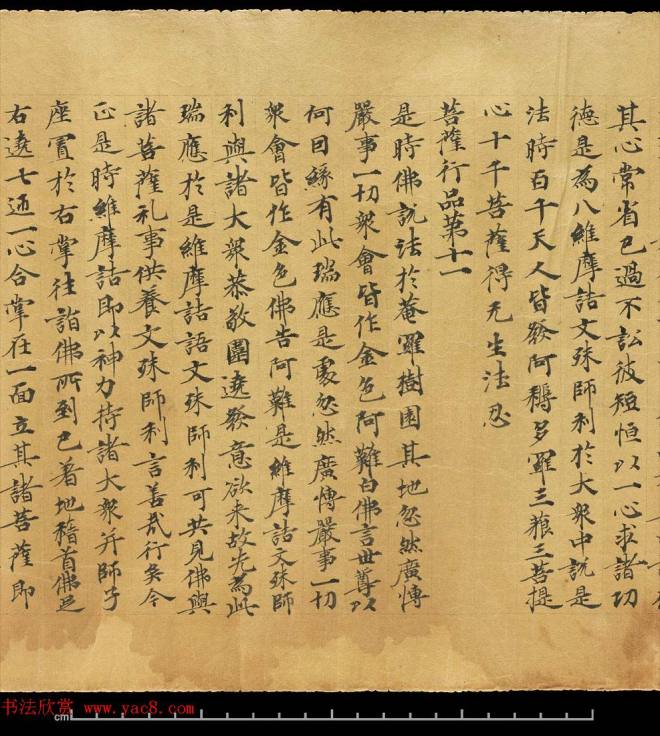 其心常省己過不訟彼短恒以一心求諸功
德是為八維摩詰文殊師利於大衆中說是
法時百千天人皆發阿耨多羅三藐三菩提
心十千菩薩得无生法忍
菩薩行品第十一
是時佛說法於菴羅樹園其地忽然廣愽
嚴事一切衆會皆作金色阿難白佛言世尊以
何因緣有此瑞應是處忽然廣愽嚴事一切
衆會皆作金色佛告阿難是維摩詰文殊師
利與諸大衆恭敬圍遶發意欲来故先為此
瑞應於是維摩詰語文殊師利可共見佛與
諸菩薩礼事供養文殊師利言善哉行矣今
正是時維摩詰即以神力持諸大衆并師子
座置於右掌往詣佛所到已著地稽首佛足
右遶七迊一心合掌在一面立其諸菩薩即
书法欣赏 www.yac8.com
cm